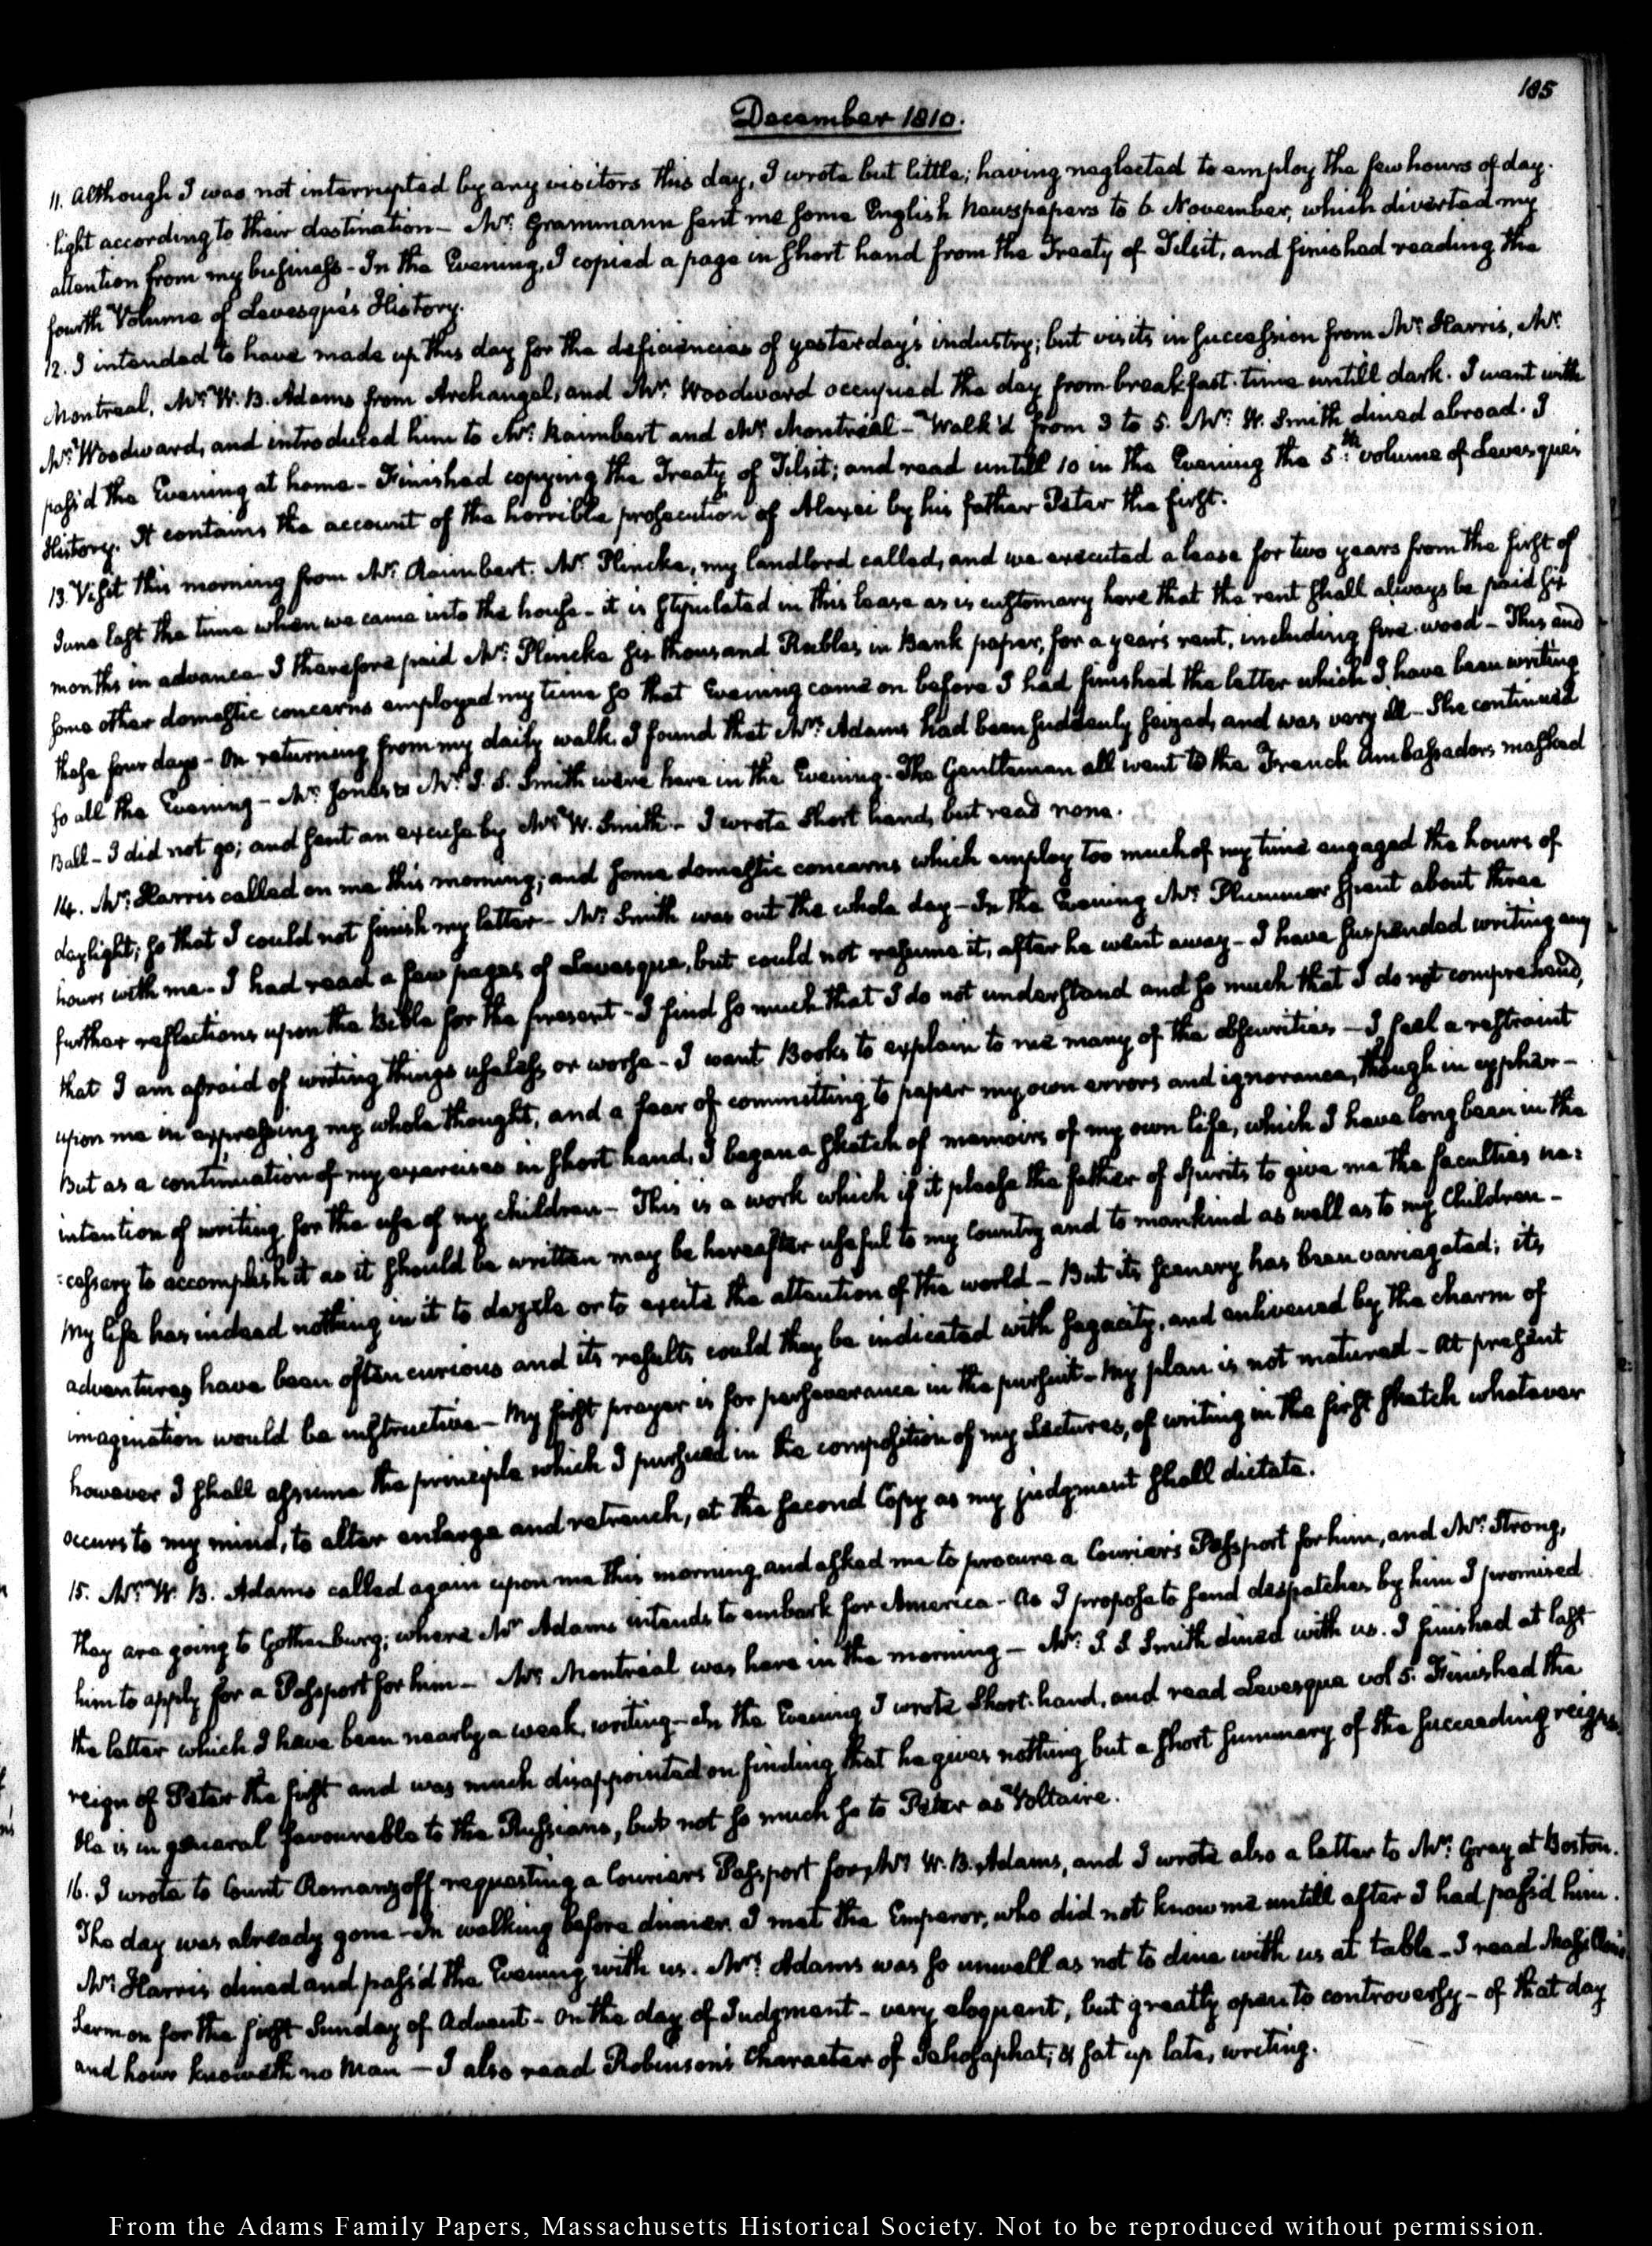 185
December 1810.
11. Although I was not interrupted by any visitors this day, I wrote but little; having neglected to employ the few hours of day-
light according to their destination — Mr. Grammann sent me some English Newspapers to 6 November, which diverted my
attention from my business - In the Evening, I copied a page in short hand from the Treaty of Tilsit, and finished reading the
fourth Volume of Levesque's History.
12. I intended to have made up this day for the deficiencies of yesterday's industry; but visits in succession from Mr. Harris, Mr.
Montreal, Mr. W. B. Adams from Archangel, and Mr. Woodward occupied the day from breakfast-time untill dark. I went with
Mr. Woodward, and introduced him to Mr. Raimbert and Mr. Montréal — Walk'd from 3 to 5. Mr. W. Smith dined abroad. I
pass'd the Evening at home — Finished copying the Treaty of Tilsit; and read untill 10 in the Evening the 5th. volume of Levesque's
History. It contains the account of the horrible prosecution of Alexei by his father Peter the first.
13. Visit this morning from Mr. Raimbert. Mr. Plincke, my landlord called, and we executed a lease for two years from the first of
June last the time when we came into the house — it is stipulated in this lease as is customary here that the rent shall always be paid six
months in advance. I therefore paid Mr. Plincke six thousand Rubles, in Bank paper, for a year's rent, including fire-wood — This and
some other domestic concerns employed my time so that Evening came on before I had finished the letter which I have been writing
these four days — On returning from my daily walk, I found that Mrs. Adams had been suddenly seized, and was very ill — She continued
so all the Evening — Mr. Jones & Mr. J. S. Smith were here in the Evening. The Gentlemen all went to the French Ambassadors masked
Ball — I did not go; and sent an excuse by Mr. W. Smith — I wrote Short hand, but read none.
14. Mr. Harris called on me this morning; and some domestic concerns which employ too much of my time engaged the hours of
daylight; so that I could not finish my letter — Mr. Smith was out the whole day — In the Evening Mr. Plummer spent about three
hours with me. I had read a few pages of Levesque, but could not resume it, after he went away — I have suspended writing any
further reflections upon the Bible for the present — I find so much that I do not understand and so much that I do not comprehend,
that I am afraid of writing things useless or worse — I want Books to explain to me many of the obscurities — I feel a restraint
upon me in expressing my whole thought, and a fear of committing to paper my own errors and ignorance, though in cypher —
But as a continuation of my exercises in short hand, I began a sketch of memoirs of my own life, which I have long been in the
intention of writing for the use of my children — This is a work which if it please the father of Spirits to give me the faculties ne=
=cessary to accomplish it as it should be written may be hereafter useful to my Country and to mankind as well as to my Children —
My life has indeed nothing in it to dazzle or to excite the attention of the world — But its scenery has been variegated; its
adventures have been often curious and its results could they be indicated with sagacity, and enlivened by the charm of
imagination would be instructive — My first prayer is for perseverance in the pursuit — My plan is not matured — At present
however I shall assume the principle which I pursued in the composition of my Lectures, of writing in the first sketch whatever
occurs to my mind, to alter enlarge and retrench, at the second Copy as my judgment shall dictate.
15. Mr. W. B. Adams called again upon me this morning and asked me to procure a Courier's Passport for him, and Mr. Strong,
they are going to Gothenburg; where Mr Adams intends to embark for America — As I propose to send despatches by him I promised
him to apply for a Passport for him — Mr. Montréal was here in the morning — Mr. J. S Smith dined with us. I finished at last
the letter which I have been nearly a week, writing — In the Evening I wrote Short-hand, and read Levesque vol 5. Finished the
reign of Peter the first and was much disappointed on finding that he gives nothing but a short summary of the succeeding reigns.
He is in general favourable to the Russians, but not so much so to Peter as Voltaire.
16. I wrote to Count Romanzoff requesting a Couriers Passport for Mr. W. B. Adams, and I wrote also a letter to Mr. Gray at Boston.
The day was already gone — In walking before dinner, I met the Emperor, who did not know me untill after I had pass'd him.
Mr. Harris dined and pass'd the Evening with us. Mrs. Adams was so unwell as not to dine with us at table — I read Massillon's
Sermon for the first Sunday of Advent — On the day of Judgment — very eloquent, but greatly open to controversy — of that day
and hour knoweth no Man — I also read Robinson's Character of Jehosaphat; & sat up late, writing.
From the Adams Family Papers, Massachusetts Historical Society. Not to be reproduced without permission.